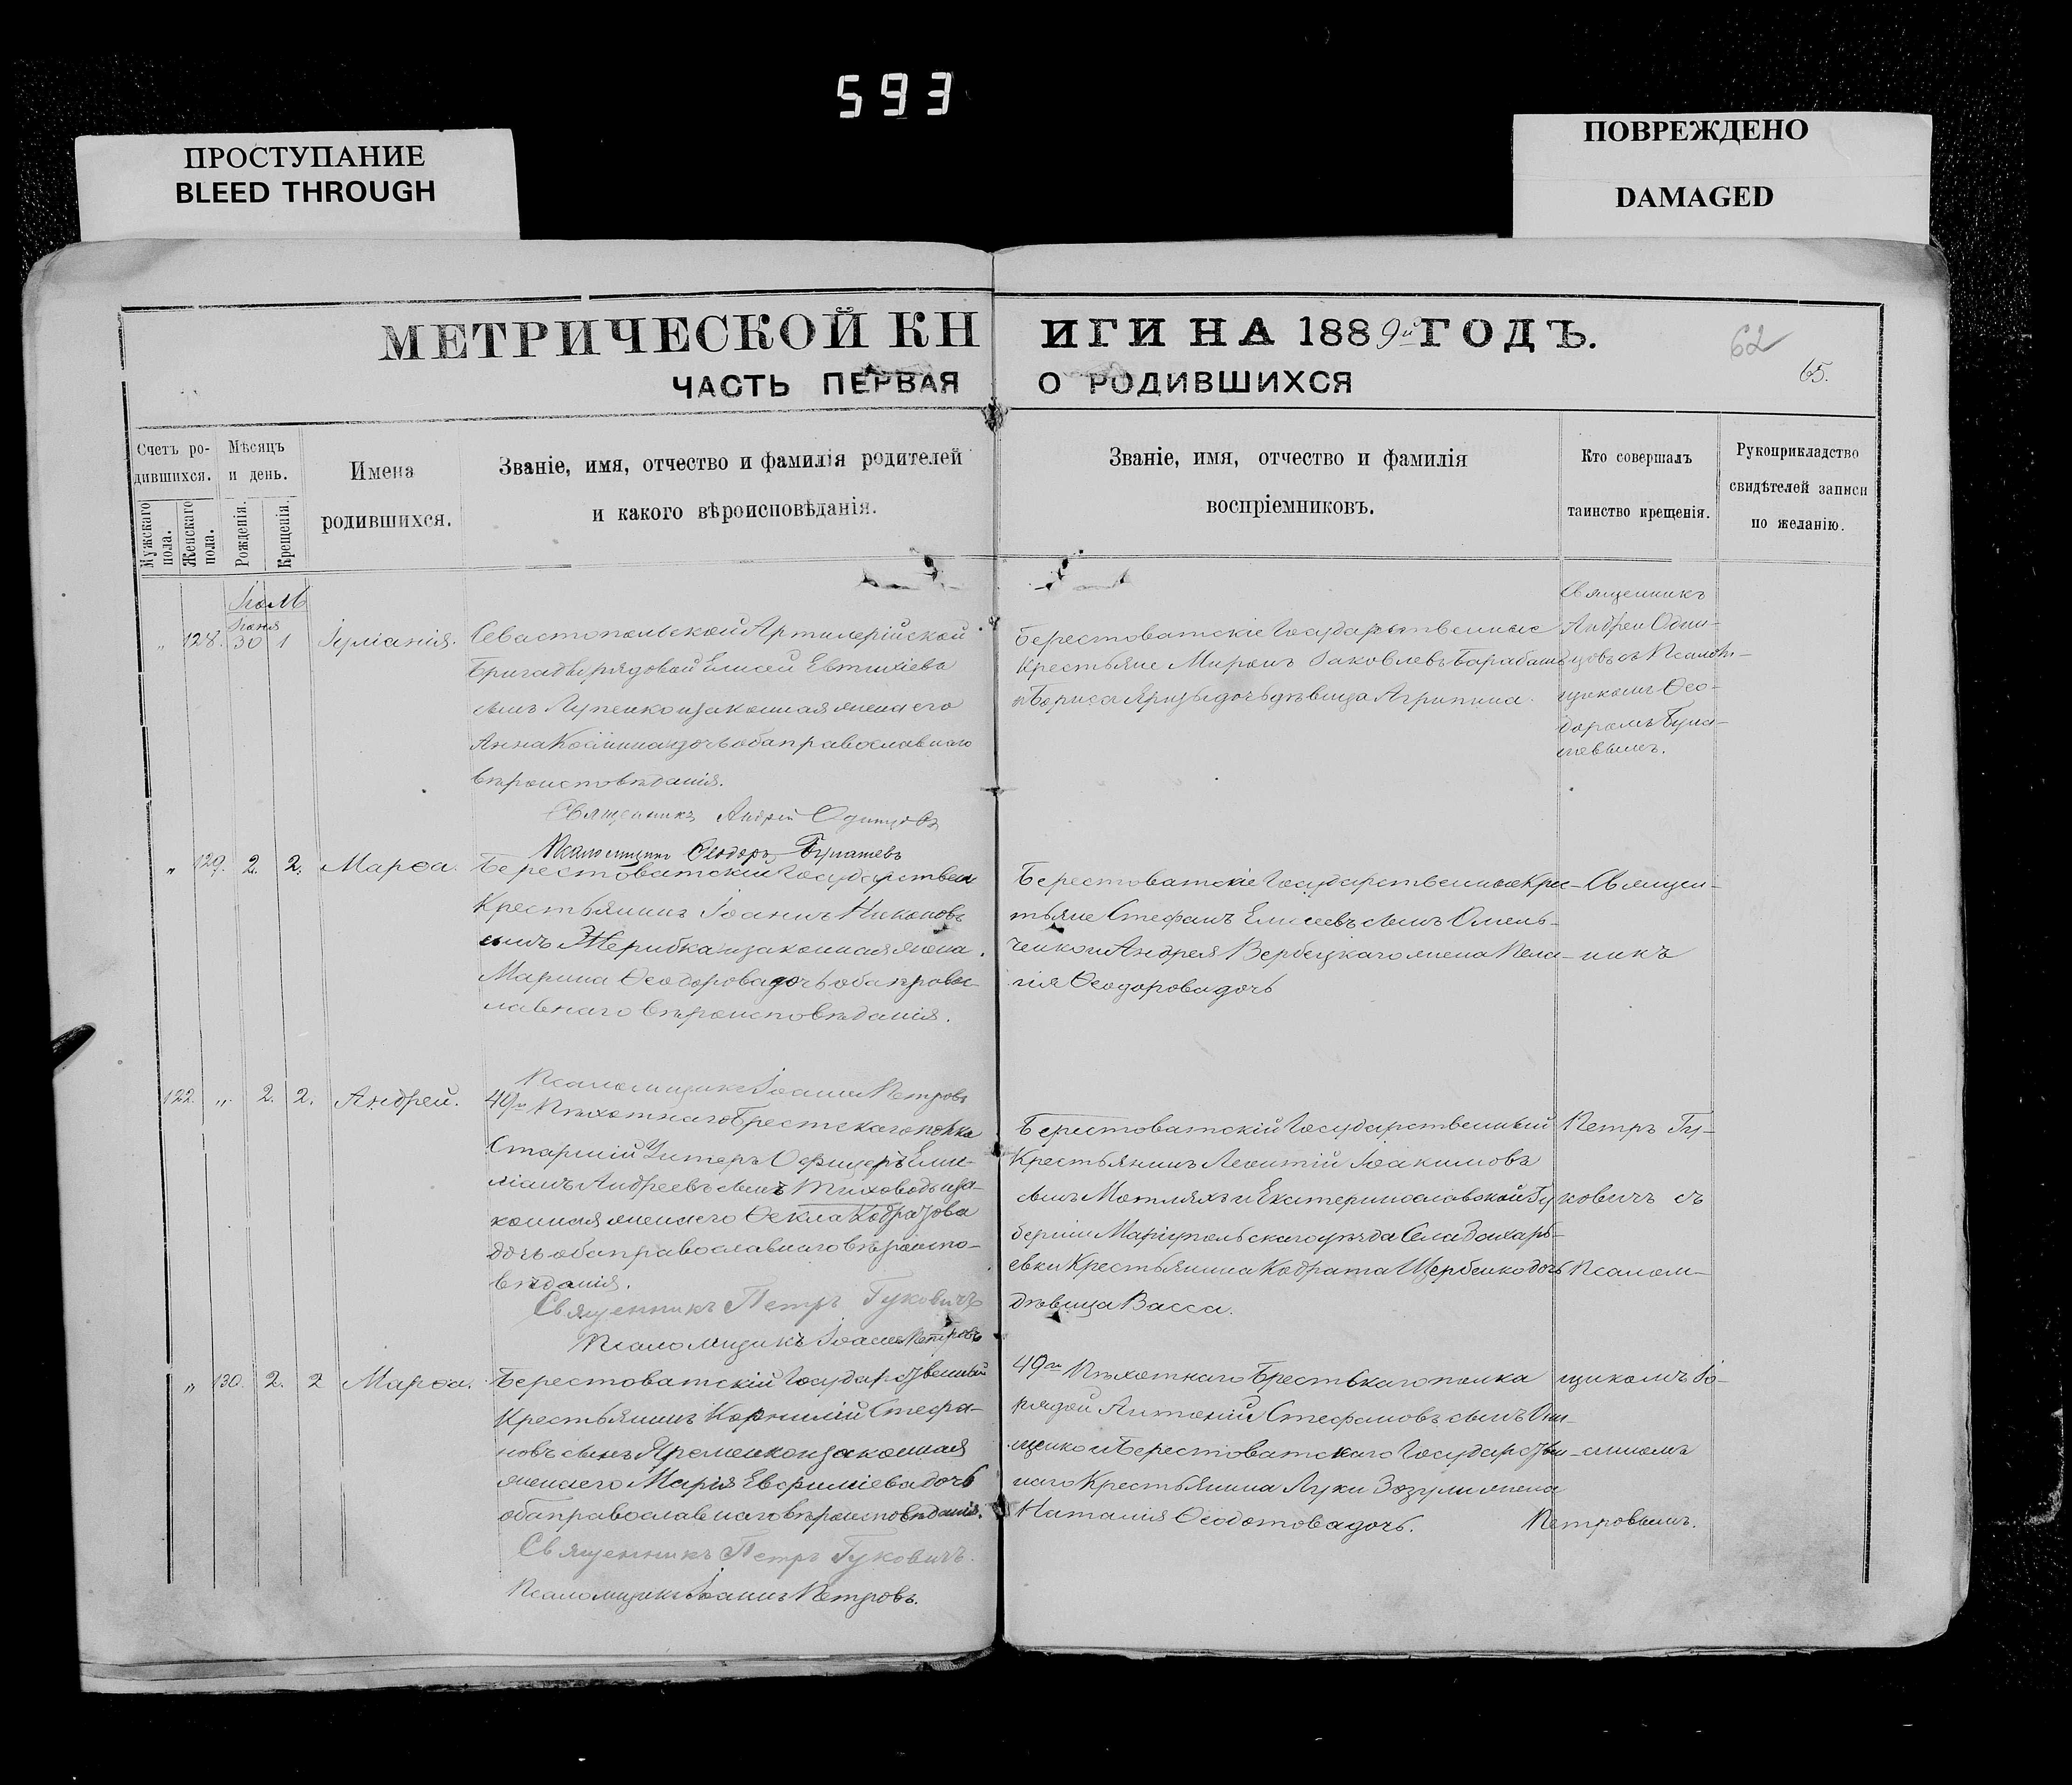 593
ПРОСТУПАНИЕ
BLEED THROUGH
ПОВРЕЖДЕНО
DAMAGED
МЕТРИЧЕСКОЙ КНИГИ НА 1889й ГОДЪ.
62
65.
ЧАСТЬ ПЕРВАЯ О РОДИВШИХСЯ
Счетъ родившихся.
Мужскаго пола.
Женскаго пола.
Мѣсяцъ и день.
Рожденія.
Крещенія.
Имена
родившихся.
Званіе, имя, отчество и фамилія родителей
и какого вѣроисповѣданія.
Званіе, имя, отчество и фамилія
воспріемниковъ.
Кто совершалъ
таинство крещенія.
Рукоприкладство
свидѣтелей записи
по желанію.
Іюня
„ 128. 30 1
Севастопольской Артилерійской
бригады рядовой Елисей Евтихіевъ
сынъ и законная жена его
Анна дочь оба православнаго
вѣроисповѣданія.
Священникъ Андрей Одинцовъ
Псаломщикъ Ѳеодоръ
Берестоватскіе Государственные
Крестьяне Миронъ Яковлевъ
дочь дѣвица Агрипина.
Священникъ
Андрей Один-
цовъ съ Псалом-
щикомъ Ѳео-
доромъ
„ 129. 2. 2. Марѳа.
Берестоватскій Государствен
Крестьянинъ Іоаннъ Никоновъ
сынъ Жерибка и законная жена
Марина Ѳеодорова дочь оба право-
славнаго вѣроисповѣданія.
Псаломщикъ Іоаннъ Петровъ
Берестоватскіе Государственные Кре-
стьяне Стефанъ Елисеевъ сынъ Омель-
ченко и Андрея Вербецкаго жена Пела-
гія Ѳеодорова дочь
Священ-
никъ
122. „ 2. 2. Андрей.
49го Пѣхотнаго Брестскаго полка
Старшій Унтеръ Офицеръ Еми-
ліанъ Андреевъ сынъ Тиховодъ и за-
конная жена его Ѳекла Кодратова
дочь оба православнаго вѣроиспо-
вѣданія.
Священникъ Петръ Гуковичъ
Псаломщикъ Іоаннъ Петровъ
Берестоватскій Государственный
Крестьянинъ Леонтій Іоакимовъ
сынъ Мотляхъ и Екатеринославской Гу
берніи Маріупольскаго уѣзда Села Захарь-
евки Крестьянина Кодрата Щербенко дочь
дѣвица Васса.
Петръ Гу-
ковичъ съ
Псалом-
„ 130. 2. 2 Марѳа.
Берестоватскій Государственный
Крестьянинъ Корнилій Стефа-
новъ сынъ Яременко и законная
жена его Марія Евфиміева дочь
оба православнаго вѣроисповѣданія.
Священникъ Петръ Гуковичъ.
Псаломщикъ Іоаннъ Петровъ.
49го Пѣхотнаго Брестскаго полка
рядов Антоній Стефановъ сынъ Они-
щенко и Берестоватскаго Государствен-
наго Крестьянина Луки Зозули жена
Наталія Ѳеодотова дочь.
щикомъ Іо-
анномъ
Петровымъ.